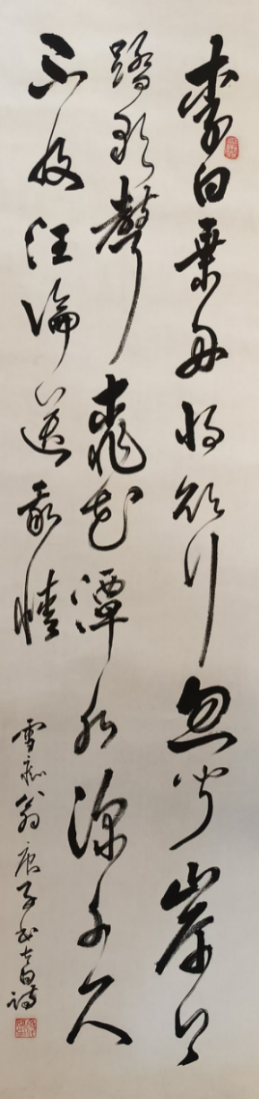 李白乘舟将欲行忽闻岸上
踏歌聲桃花潭水深千尺
不及汪倫送我情
雪翁庚子书太白诗